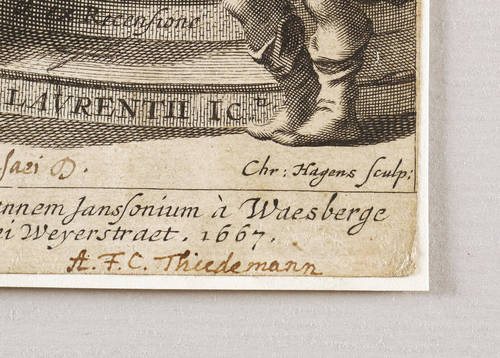 ex Recensione
LAVRENTII ICti
saei D.
Chr: Hagens sculp:
annem Janssonium à Waesberge
ei Weyerstraet. 1667.
A. F. C. Thiedemann